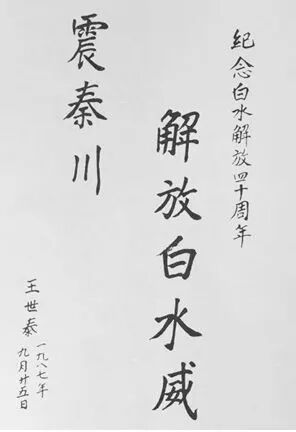 纪念白水解放四十周年
解放白水威
震秦川
王世泰
一九八七年
九月廿五日